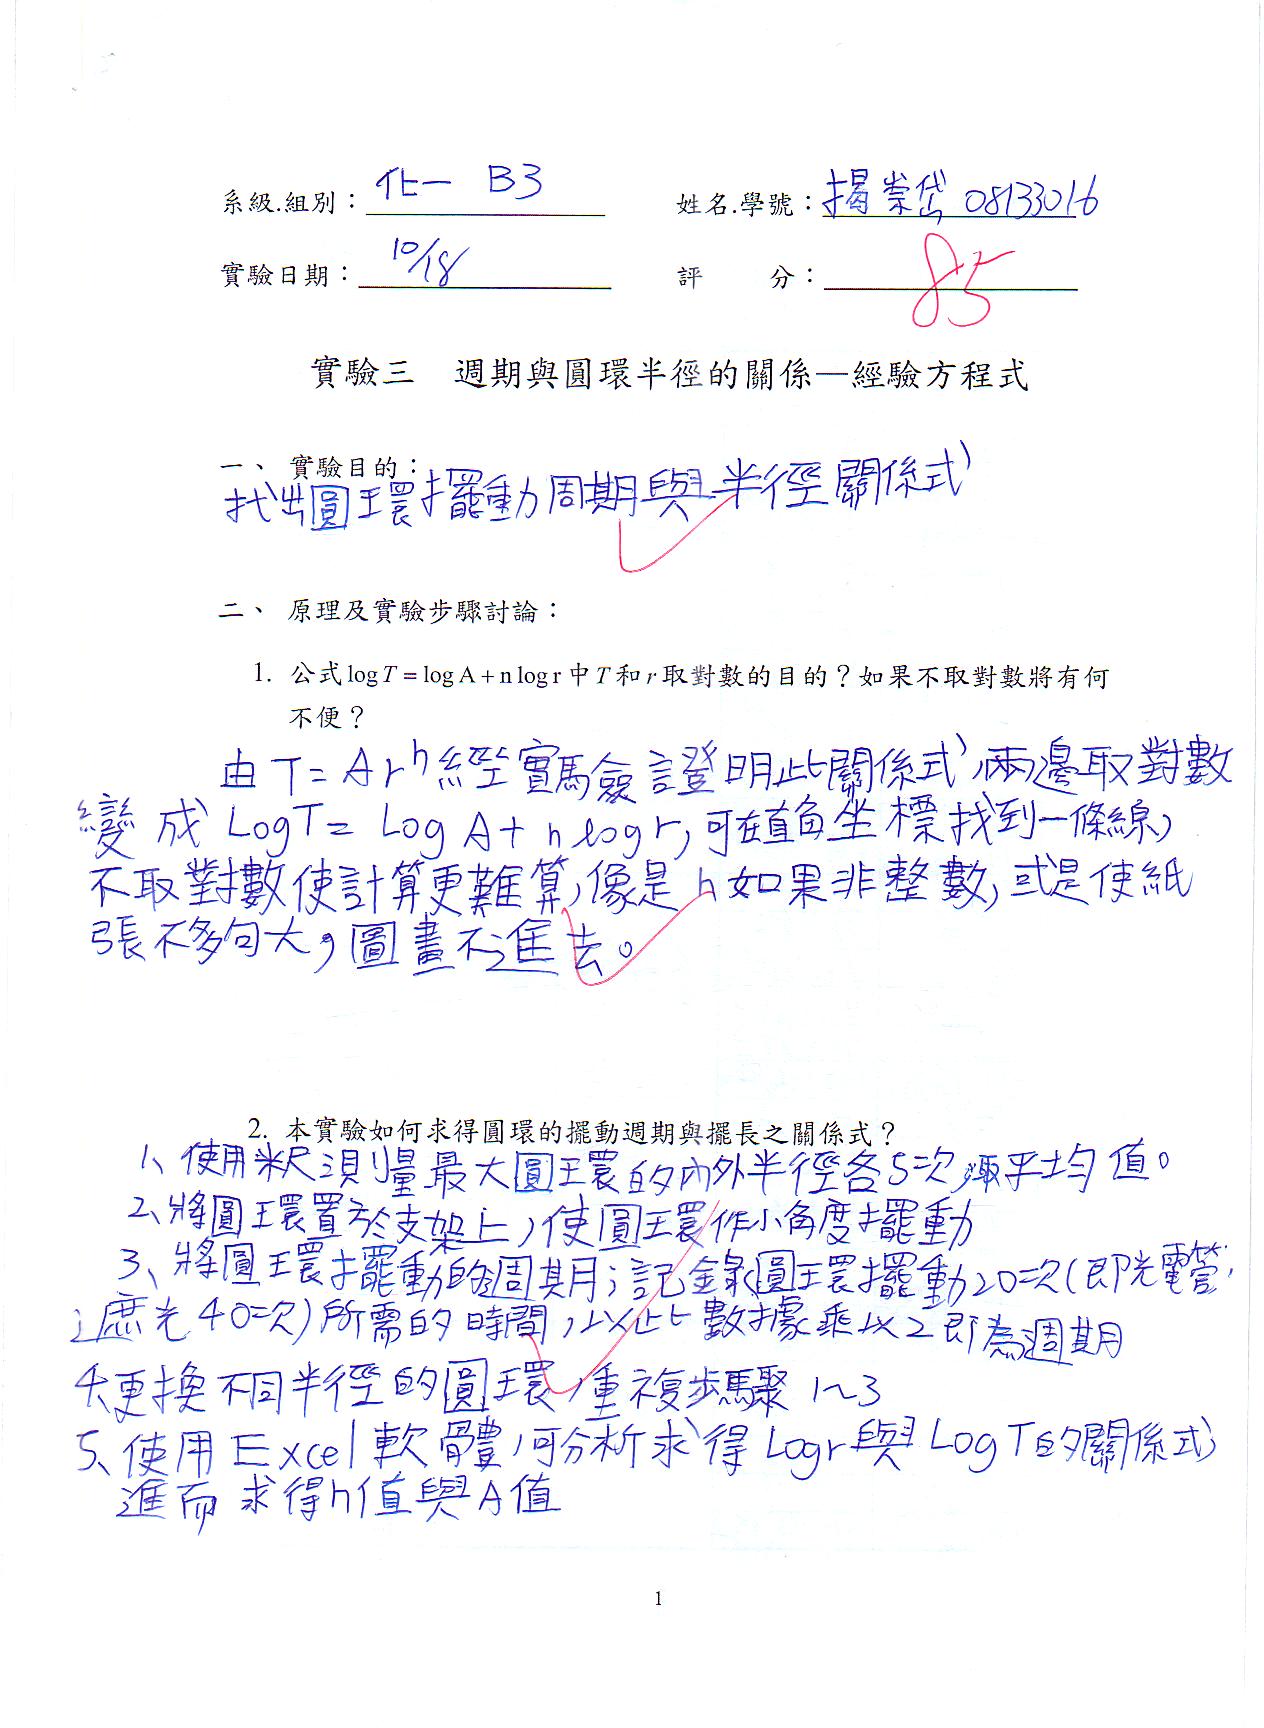 系級.組別：化一 B3
姓名.學號：揭崇岱 08133016
實驗日期：10/18
評 分：85
實驗三 週期與圓環半徑的關係—經驗方程式
一、 實驗目的：
找出圓環擺動周期與半徑關係式
二、 原理及實驗步驟討論：
1. 公式log T = log A + n log r 中 T 和 r 取對數的目的？如果不取對數將有何
不便？
由 T = A rⁿ 經實驗證明此關係式，兩邊取對數
變成 Log T = Log A + n log r，可在直角坐標找到一條線，
不取對數使計算更難算，像是 n 如果非整數，或是使紙
張不多句大，圖畫不進去。
2. 本實驗如何求得圓環的擺動週期與擺長之關係式？
1、使用米尺測量最大圓環的內外半徑各5次，取平均值。
2、將圓環置於支架上，使圓環作小角度擺動
3、將圓環擺動的周期；記錄圓環擺動20次(即光電管
遮光40次)所需的時間，以此數據乘以2即為週期
4、更換不同半徑的圓環，重複步驟 1~3
5、使用Excel軟體，可分析求得 Logr與Log T的關係式，
進而求得n值與A值
1